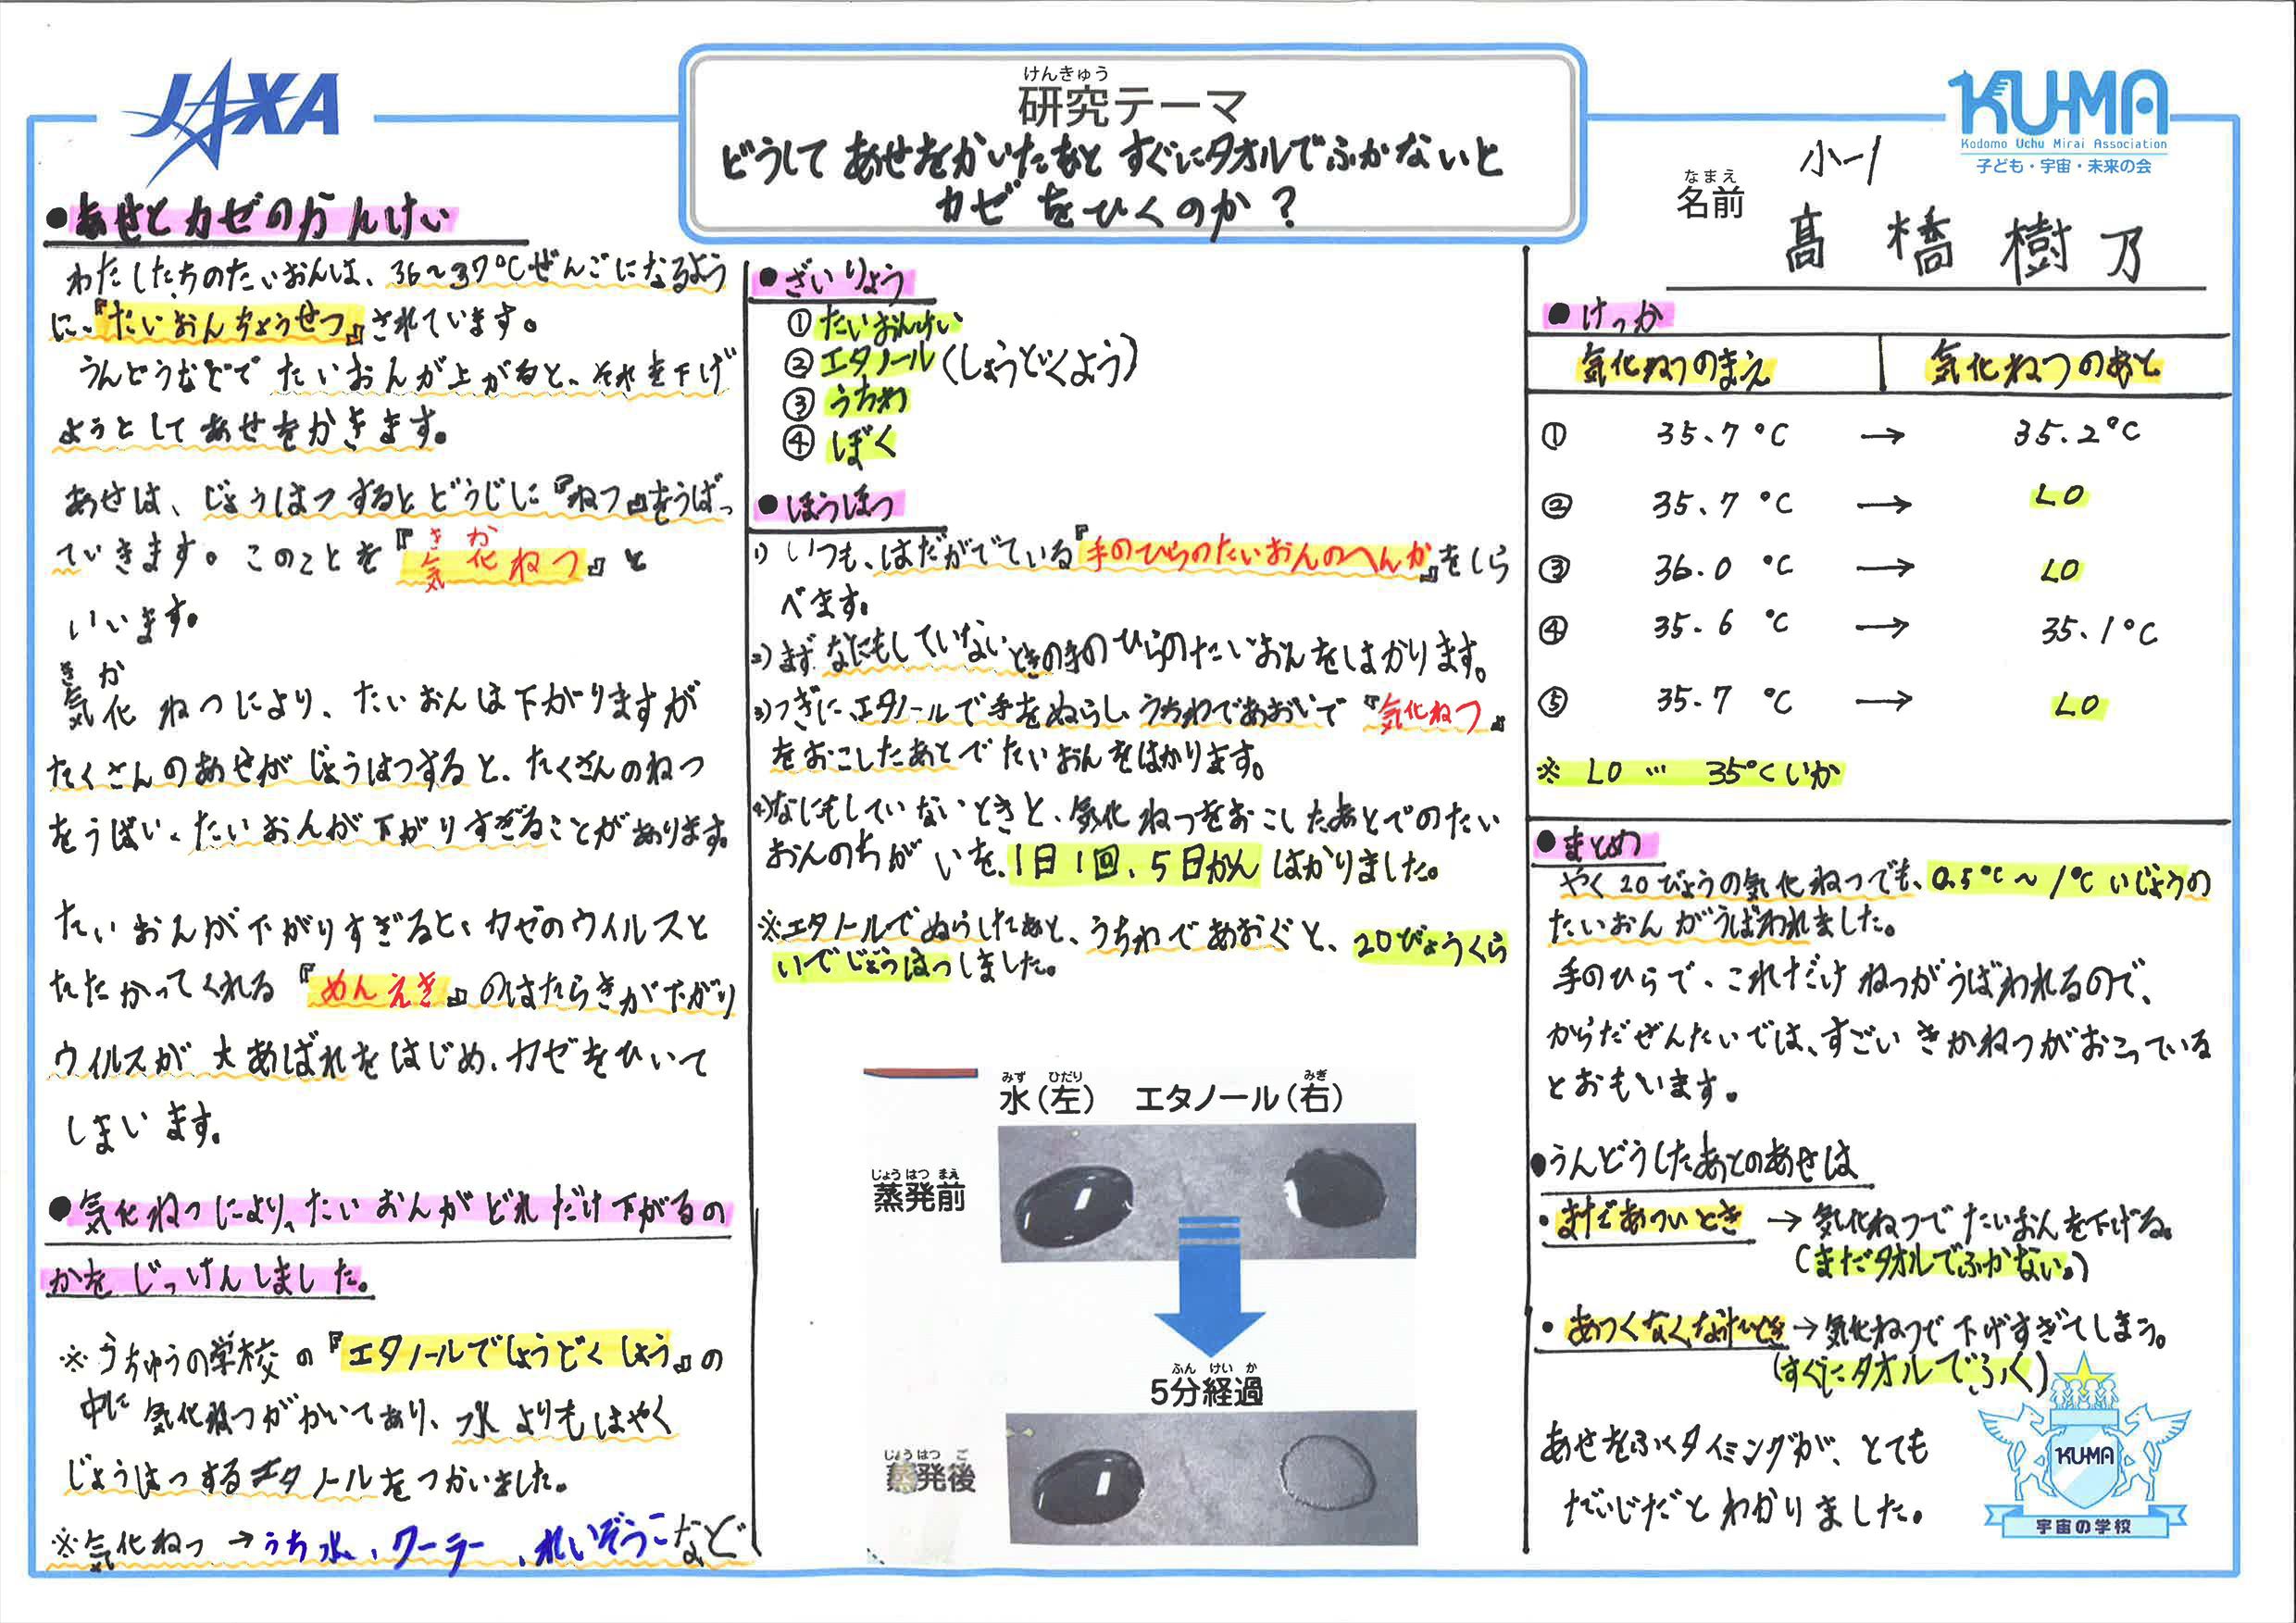 JAXA
けんきゅう
研究テーマ
どうして あせをかいたあと すぐにタオルでふかないと
カゼをひくのか？
KUMA
Kodomo Uchu Mirai Association
子ども・宇宙・未来の会
小一1
なまえ
名前
髙橋樹乃
●あせとカゼのかんけい
わたしたちのたいおんは、36〜37℃ぜんごになるよう
に、『たいおんちょうせつ』されています。
うんどうなどで たいおんが上がると、それを下げ
ようとして あせをかきます。
あせは、じょうはつするとどうじに『ねつ』をうばっ
ていきます。このことを『気化ねつ』と
きか
いいます。
きか
気化ねつにより、たいおんは下がりますが
たくさんのあせが じょうはつすると、たくさんのねつ
をうばい、たいおんが下がりすぎることがあります。
たいおんが下がりすぎると、カゼのウイルスと
たたかってくれる『めんえき』のはたらきが下がり
ウイルスが 大あばれをはじめ、カゼをひいて
しまいます。
●気化ねつにより、たいおんがどれだけ下がるの
かを じっけんしました。
※うちゅうの学校の『エタノールでしょうどくしよう』の
中に 気化ねつがかいてあり、水よりもはやく
じょうはつするエタノールをつかいました。
※気化ねつ→うち水、クーラー、れいぞうこなど
●ざいりょう
①たいおんけい
②エタノール(しょうどくよう)
③うちわ
④ぼく
●ほうほう
1)いつも、はだがでている『手のひらのたいおんのへんか』をしら
べます。
2)まず なにもしていないときの手のひらのたいおんをはかります。
3)つぎに、エタノールで手をぬらし、うちわであおいで『気化ねつ』
をおこしたあとで たいおんをはかります。
4)なにもしていないときと、気化ねつをおこしたあとでのたい
おんのちがいを、1日1回、5日かん はかりました。
※エタノールでぬらしたあと、うちわであおぐと、20びょうくら
いでじょうはつしました。
みず ひだり みぎ
水(左) エタノール(右)
じょうはつ まえ
蒸発前
ふん けいか
5分経過
じょうはつ ご
蒸発後
●けっか
気化ねつのまえ 気化ねつのあと
① 35.7℃ → 35.2℃
② 35.7℃ → LO
③ 36.0℃ → LO
④ 35.6℃ → 35.1℃
⑤ 35.7℃ → LO
※ LO … 35℃いか
●まとめ
やく20びょうの気化ねつでも、0.5℃〜1℃いじょうの
たいおんがうばわれました。
手のひらで、これだけ ねつがうばわれるので、
からだぜんたいでは、すごい きかねつがおこっている
とおもいます。
●うんどうしたあとのあせは
・まだあついとき → 気化ねつで たいおんを下げる。
(まだタオルでふかない。)
・あつくなくなったとき→気化ねつで 下げすぎてしまう。
(すぐにタオルでふく)
あせをふくタイミングが、とても
だいじだと わかりました。
KU-MA
宇宙の学校